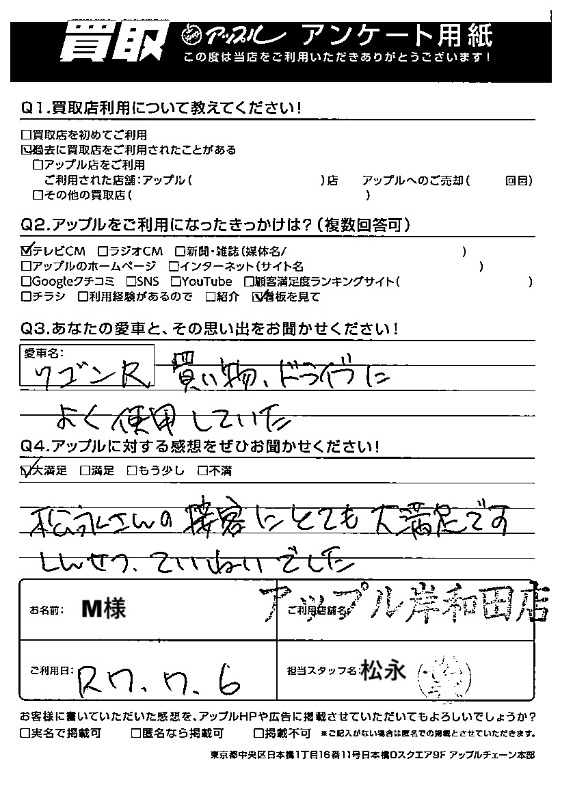 買取 アップル アンケート用紙
この度は当店をご利用いただきありがとうございます!
Q1.買取店利用について教えてください!
□買取店を初めてご利用
☑過去に買取店をご利用されたことがある
□アップル店をご利用
ご利用された店舗:アップル( )店 アップルへのご売却( 回目)
□その他の買取店( )
Q2.アップルをご利用になったきっかけは?(複数回答可)
☑テレビCM □ラジオCM □新聞・雑誌(媒体名/ )
□アップルのホームページ □インターネット(サイト名 )
□Googleクチコミ □SNS □YouTube □顧客満足度ランキングサイト( )
□チラシ □利用経験があるので □紹介 ☑看板を見て
Q3.あなたの愛車と、その思い出をお聞かせください!
愛車名:
ワゴンR 買い物、ドライブに
よく使用していた
Q4.アップルに対する感想をぜひお聞かせください!
☑大満足 □満足 □もう少し □不満
松永さんの接客にとても大満足です
しんせつ、ていねいでした
お名前: M様 ご利用店舗名: アップル岸和田店
ご利用日: R7.7.6 担当スタッフ名: 松永
お客様に書いていただいた感想を、アップルHPや広告に掲載させていただいてもよろしいでしょうか?
□実名で掲載可 □匿名なら掲載可 □掲載不可 ※ご記入がない場合は匿名での掲載とさせていただきます。
東京都中央区日本橋1丁目16番11号日本橋Dスクエア9F アップルチェーン本部